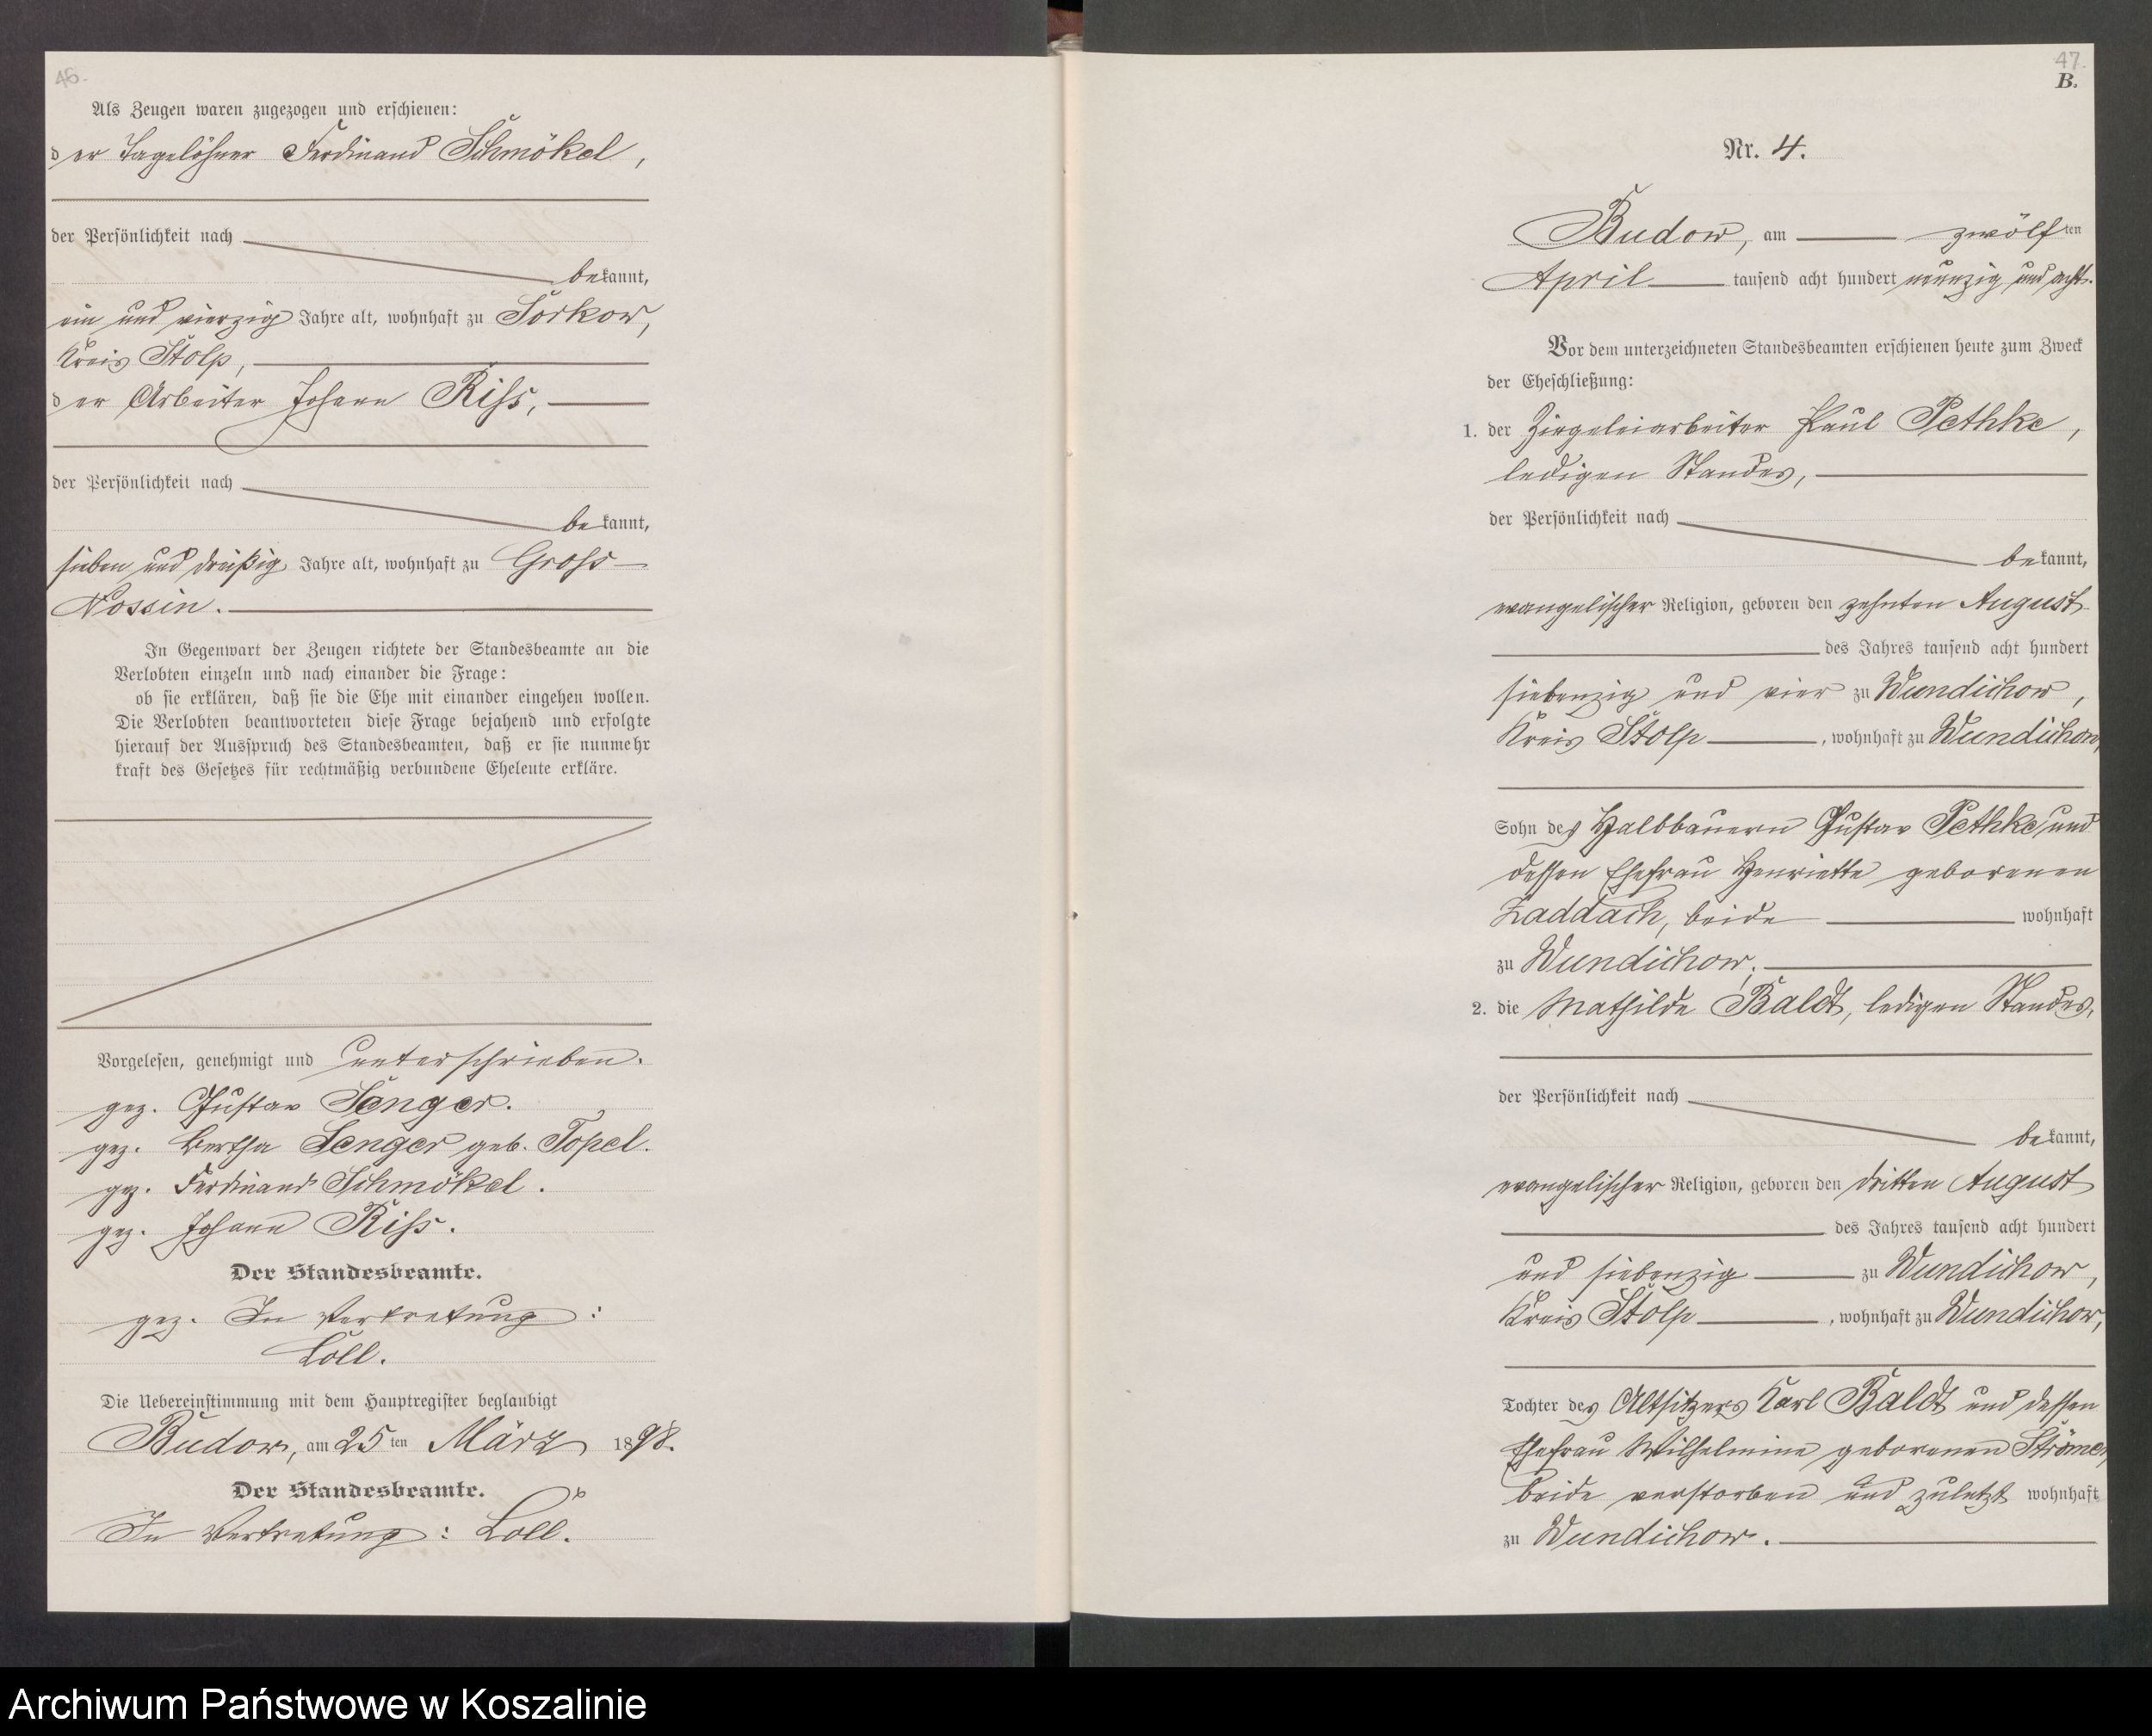 46.
Als Zeugen waren zugezogen und erschienen:
der Tagelöhner Ferdinand Schmökel,
der Persönlichkeit nach
bekannt,
ein und vierzig Jahre alt, wohnhaft zu Sorkow,
Kreis Stolp,
der Arbeiter Johann Riss,
der Persönlichkeit nach
bekannt,
sieben und dreißig Jahre alt, wohnhaft zu Gross-
Nossin.
In Gegenwart der Zeugen richtete der Standesbeamte an die
Verlobten einzeln und nach einander die Frage:
ob sie erklären, daß sie die Ehe mit einander eingehen wollen.
Die Verlobten beantworteten diese Frage bejahend und erfolgte
hierauf der Ausspruch des Standesbeamten, daß er sie nunmehr
kraft des Gesetzes für rechtmäßig verbundene Eheleute erkläre.
Vorgelesen, genehmigt und unterschrieben.
gez. Gustav Senger.
gez. Bertha Senger geb. Topel.
gez. Ferdinand Schmökel.
gez. Johann Riss.
Der Standesbeamte.
gez. In Vertretung:
Loll.
Die Uebereinstimmung mit dem Hauptregister beglaubigt
Budow, am 25ten März 1898.
Der Standesbeamte.
In Vertretung: Loll.
47.
B.
Nr. 4.
Budow, am zwölften
April tausend acht hundert neunzig und acht.
Vor dem unterzeichneten Standesbeamten erschienen heute zum Zweck
der Eheschließung:
1. der Ziegeleiarbeiter Paul Pethke,
ledigen Standes,
der Persönlichkeit nach
bekannt,
evangelischer Religion, geboren den zehnten August
des Jahres tausend acht hundert
siebenzig und vier zu Wundichow,
Kreis Stolp, wohnhaft zu Wundichow,
Sohn des Halbbauern Gustav Pethke und
dessen Ehefrau Henriette geborenen
Zaddach, beide wohnhaft
zu Wundichow.
2. die Mathilde Baldt, ledigen Standes,
der Persönlichkeit nach
bekannt,
evangelischer Religion, geboren den dritten August
des Jahres tausend acht hundert
und siebenzig zu Wundichow,
Kreis Stolp, wohnhaft zu Wundichow,
Tochter des Altsitzers Karl Baldt und dessen
Ehefrau Wilhelmine geborenen Strömer,
beide verstorben und zuletzt wohnhaft
zu Wundichow.
Archiwum Państwowe w Koszalinie